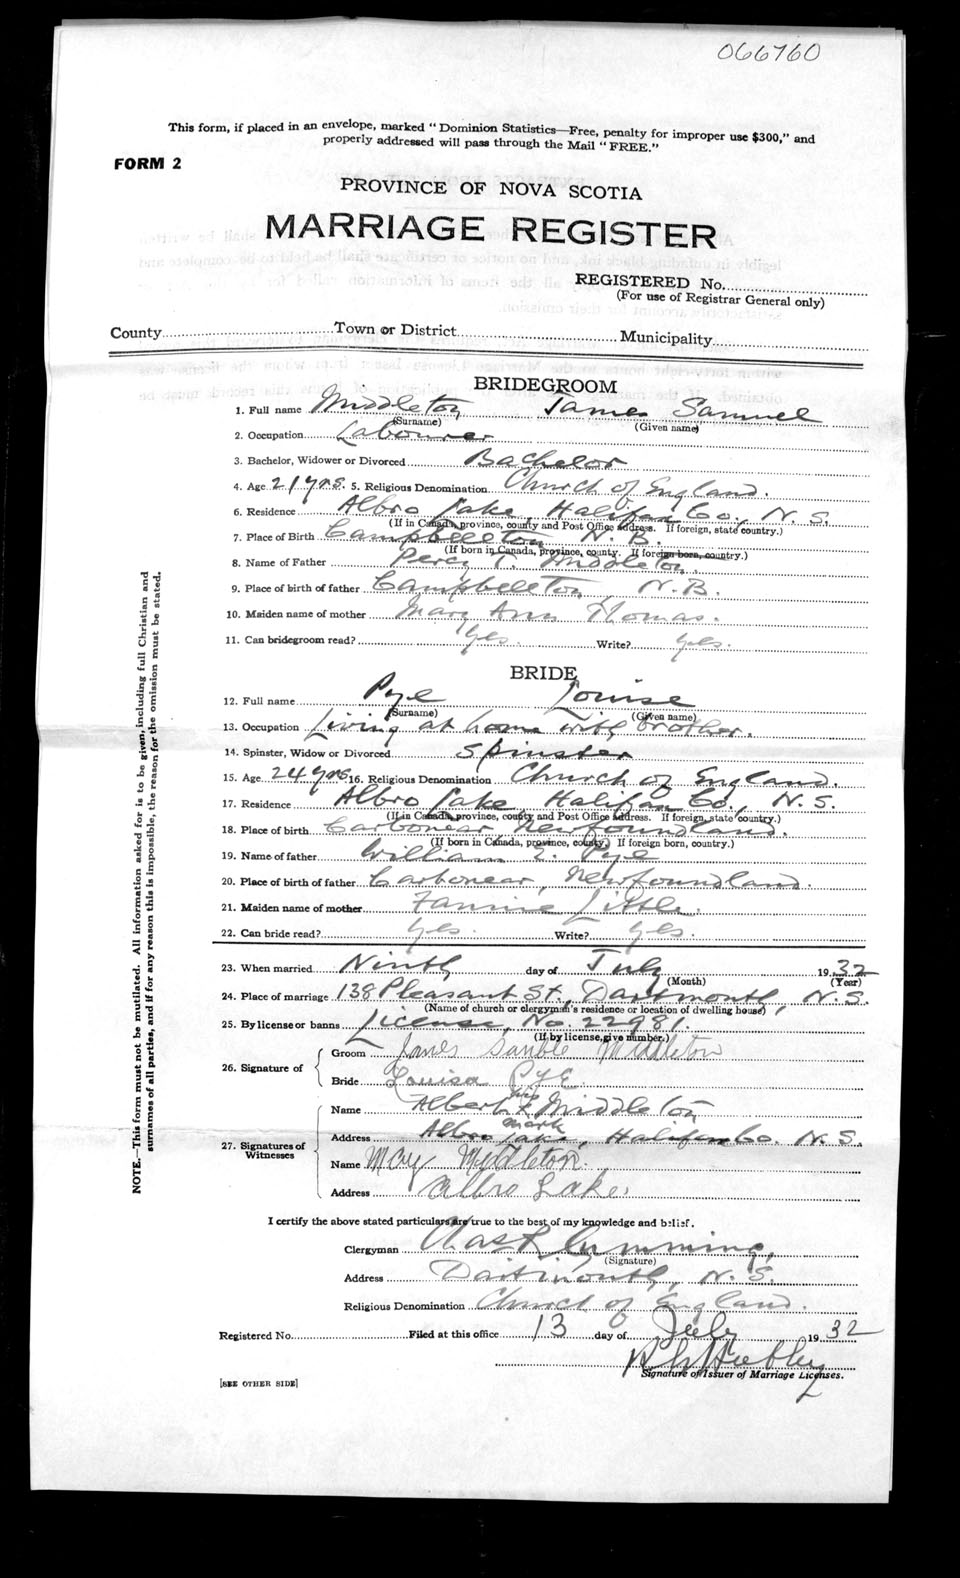 066760
This form, if placed in an envelope, marked "Dominion Statistics—Free, penalty for improper use $300," and
properly addressed will pass through the Mail "FREE."
FORM 2
PROVINCE OF NOVA SCOTIA
MARRIAGE REGISTER
REGISTERED No.
(For use of Registrar General only)
County Town or District Municipality
BRIDEGROOM
1. Full name Middleton James Samuel
(Surname) (Given name)
2. Occupation Labourer
3. Bachelor, Widower or Divorced Bachelor
4. Age 21 yrs. 5. Religious Denomination Church of England.
6. Residence Albro Lake, Halifax Co., N. S.
(If in Canada, province, county and Post Office address. If foreign, state country.)
7. Place of Birth Campbellton N. B.
(If born in Canada, province, county. If foreign born, country.)
8. Name of Father Percy T. Middleton
9. Place of birth of father Campbellton, N. B.
10. Maiden name of mother Mary Ann Thomas.
11. Can bridegroom read? Yes. Write? Yes.
BRIDE
12. Full name Pye Louise
(Surname) (Given name)
13. Occupation Living at home with brother.
14. Spinster, Widow or Divorced Spinster
15. Age 24 yrs 16. Religious Denomination Church of England.
17. Residence Albro Lake Halifax Co., N. S.
(If in Canada, province, county and Post Office address. If foreign, state country.)
18. Place of birth Carbonear, Newfoundland.
(If born in Canada, province, county.) If foreign born, country.)
19. Name of father William E. Pye
20. Place of birth of father Carbonear, Newfoundland.
21. Maiden name of mother Fannie Little.
22. Can bride read? Yes. Write? Yes.
23. When married Ninth day of July 1932
(Month) (Year)
24. Place of marriage 138 Pleasant St., Dartmouth, N. S.
(Name of church or clergyman's residence or location of dwelling house)
25. By license or banns License, No. 22981.
(If by license, give number.)
26. Signature of
Groom James Samble Middleton
Bride Louisa Pye
27. Signatures of Witnesses
Name Albert his x mark Middleton
Address Albro Lake, Halifax Co. N. S.
Name May Myddleton.
Address Albro Lake,
I certify the above stated particulars are true to the best of my knowledge and belief.
Clergyman Chas R. Cumming,
(Signature)
Address Dartmouth, N. S.
Religious Denomination Church of England.
Registered No. Filed at this office 13 day of July 1932
Signature of Issuer of Marriage Licenses.
[SEE OTHER SIDE]
NOTE.—This form must not be mutilated. All information asked for is to be given, including full Christian and
surnames of all parties, and if for any reason this is impossible, the reason for the omission must be stated.